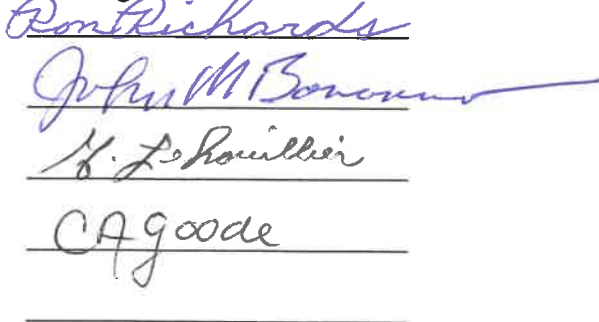 Ron Richards
John M Bonanno
H. Lehouillier
CA Goode